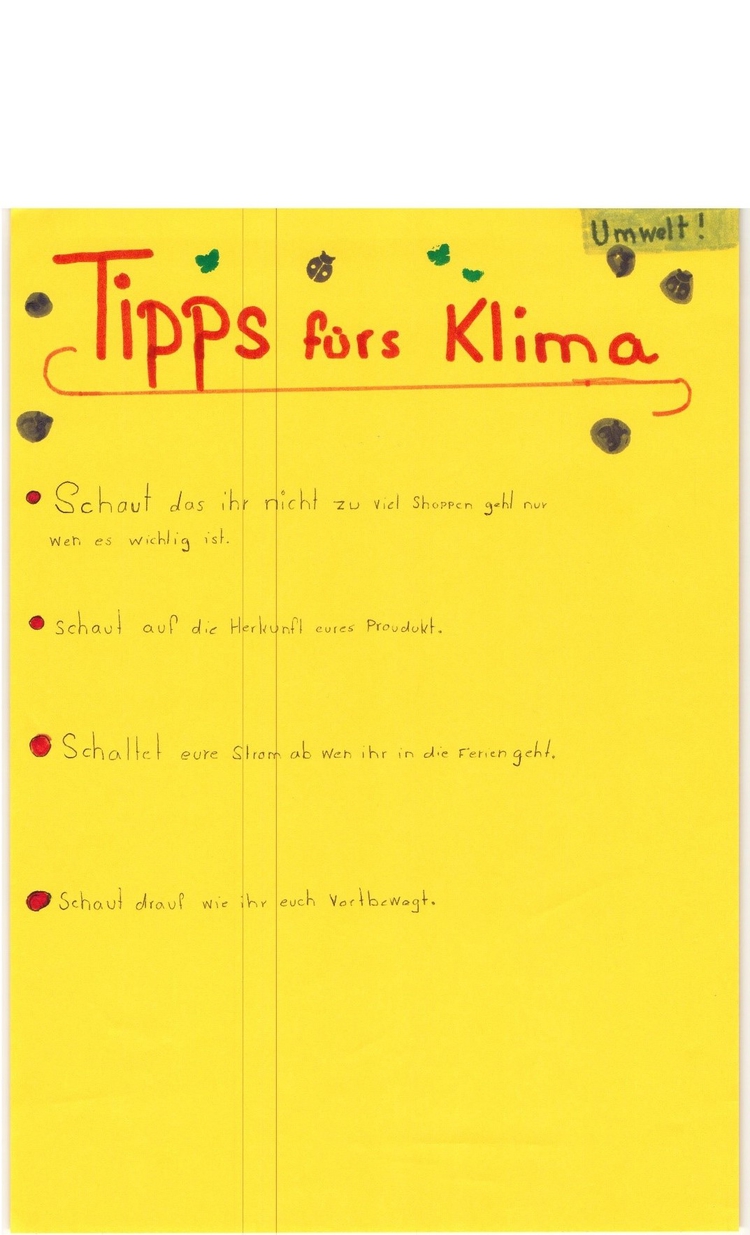 Umwelt!
Tipps fürs Klima
Schaut das ihr nicht zu viel Shoppen geht nur
wen es wichtig ist.
schaut auf die Herkunft eures Proudukt.
Schaltet eure Strom ab wen ihr in die Ferien geht.
Schaut drauf wie ihr euch Vortbewegt.